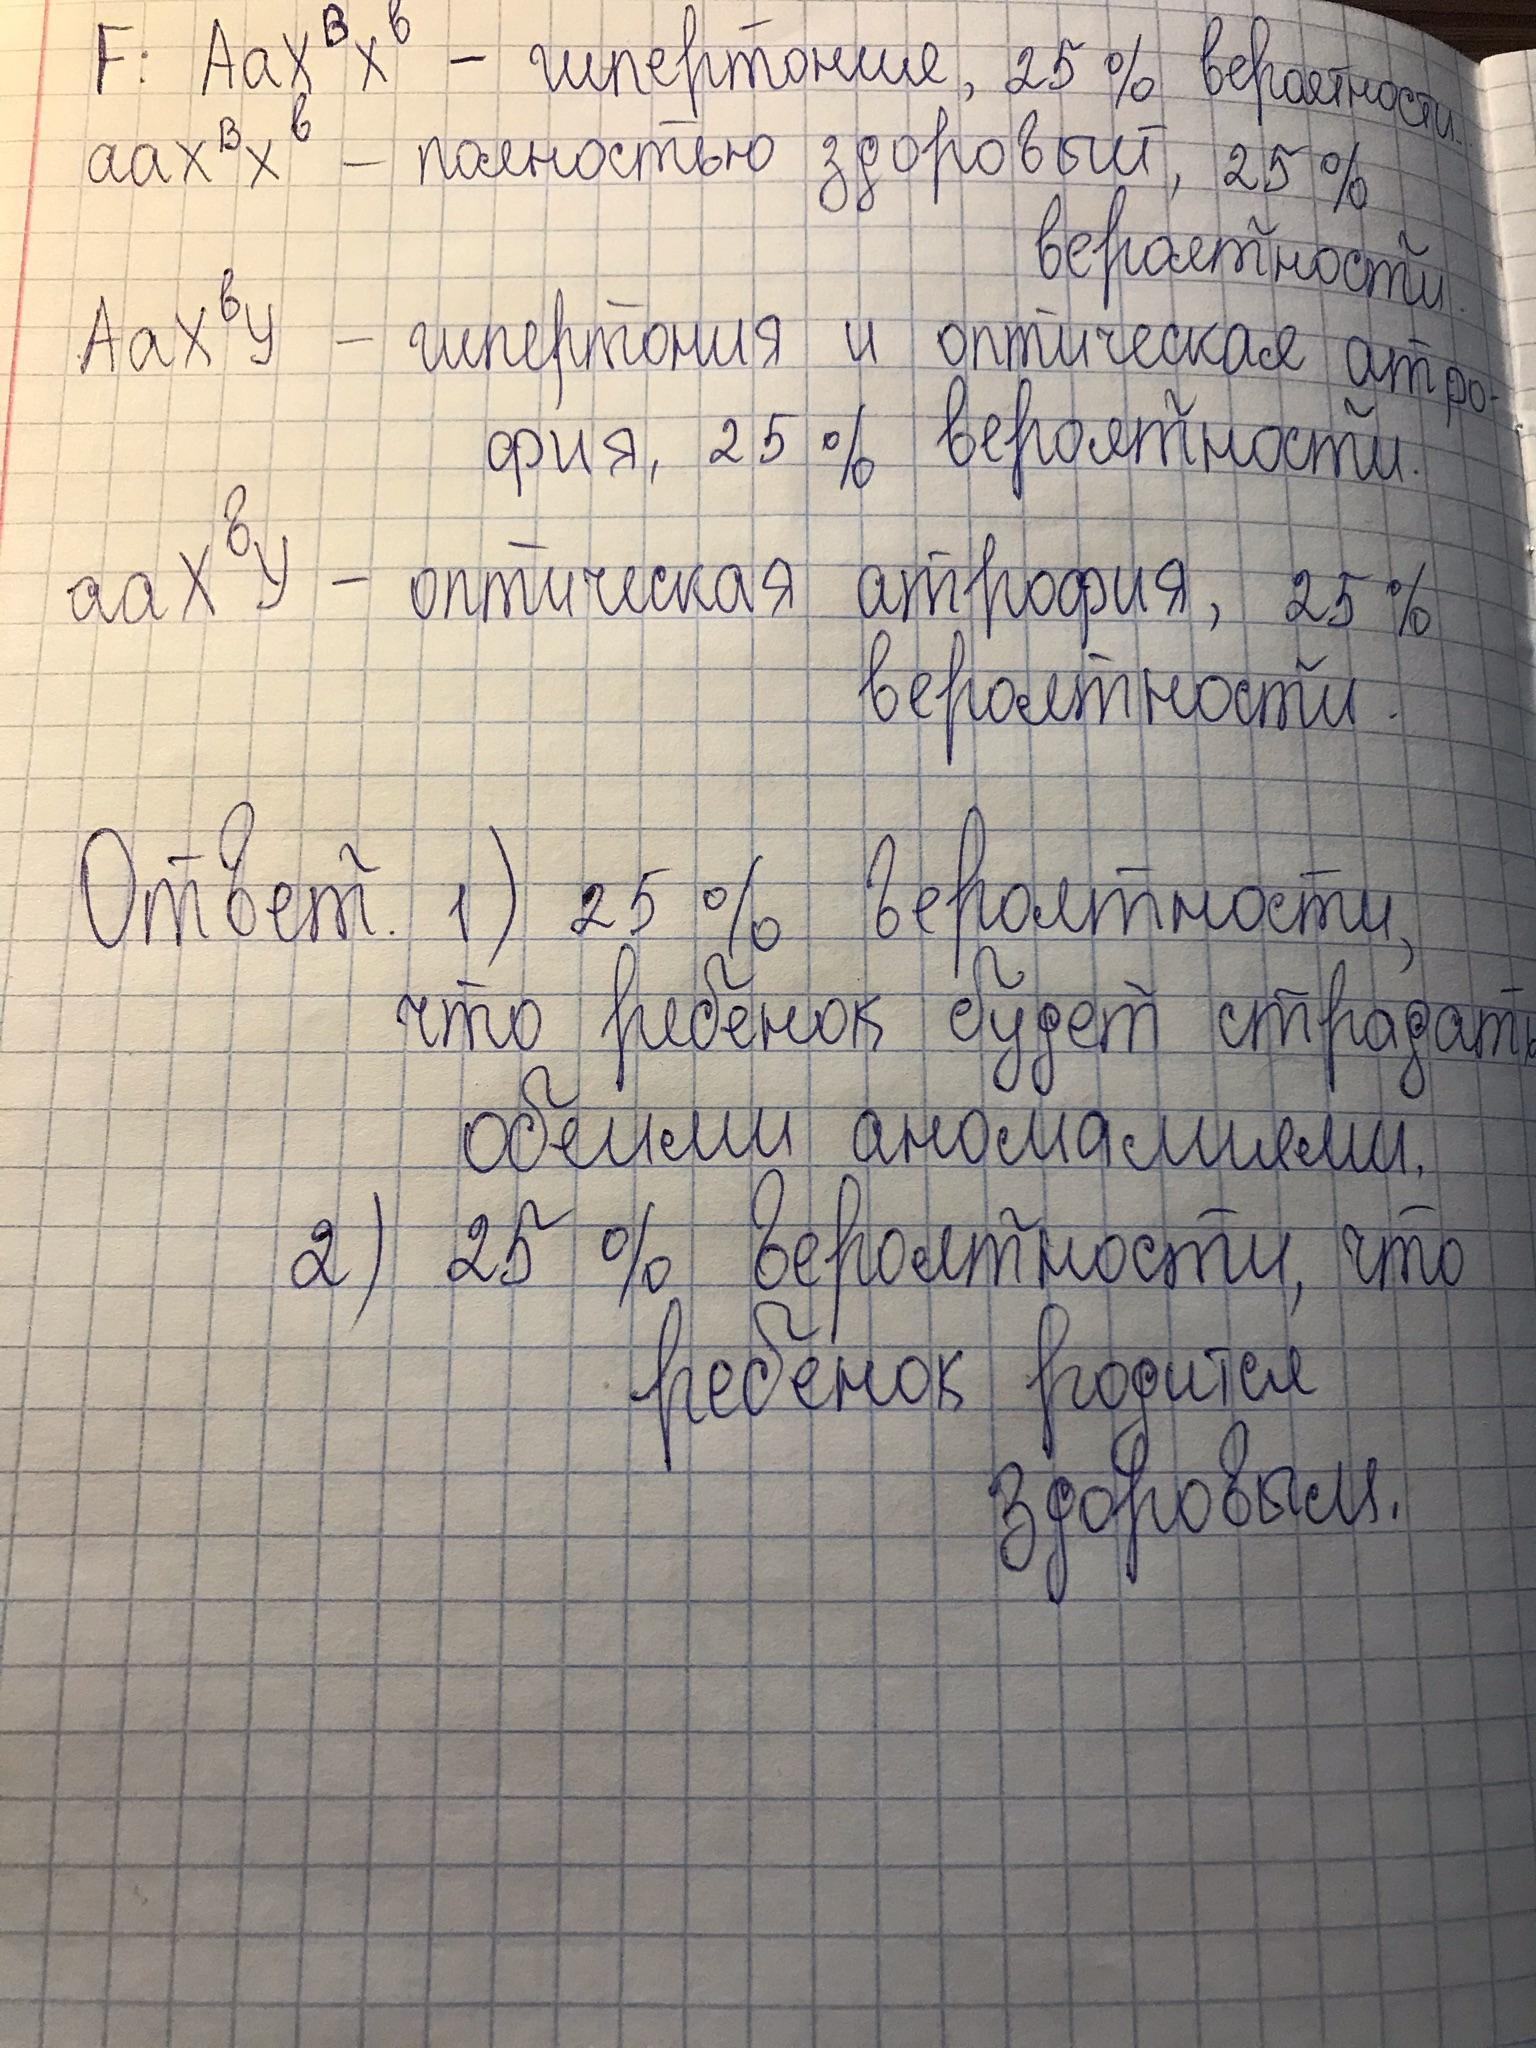 F: AaXᴮXᵇ – гипертоние, 25 % вероятности.
aaXᴮXᵇ – полностью здоровый, 25 %
вероятности.
AaXᵇY – гипертония и оптическая атро-
фия, 25 % вероятности.
aaXᵇY – оптическая атрофия, 25 %
вероятности.
Ответ. 1) 25 % вероятности,
что ребёнок будет страдать
обеими аномалиями.
2) 25 % вероятности, что
ребёнок родится
здоровым.